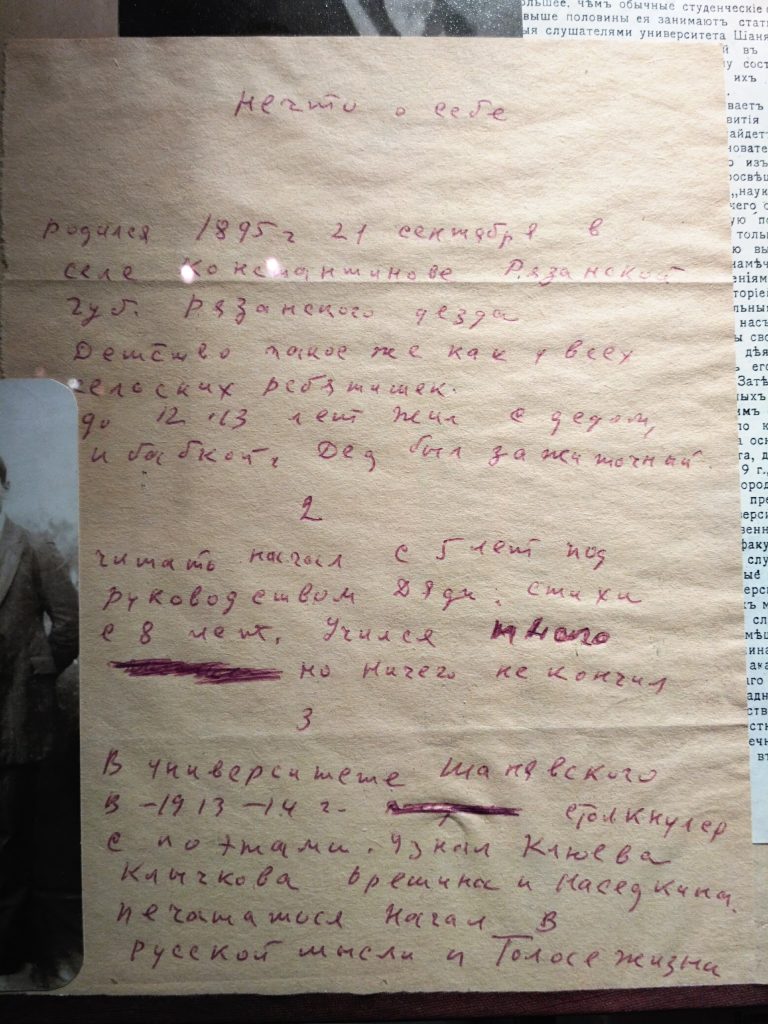 большее, чѣмъ обычные студенческіе
выше половины ея занимаютъ стат
слушателями университета Шаня
Нечто о себе
Родился 1895 г 21 сентября в
селе Константинове Рязанской
губ. Рязанского уезда
Детство такое же как у всех
сельских ребятишек.
до 12-13 лет жил с дедом,
и бабкой. Дед был зажиточный.
2
читать начал с 5 лет под
руководством Дяди. стихи
с 8 лет. Учился много
но ничего не кончил
3
В университете Шанявского
в -1913-14 г. столкнулся
с поэтами. Узнал Клюева
Клычкова Орешина и Наседкина.
печататься Начал В
русской мысли и Голосе жизни